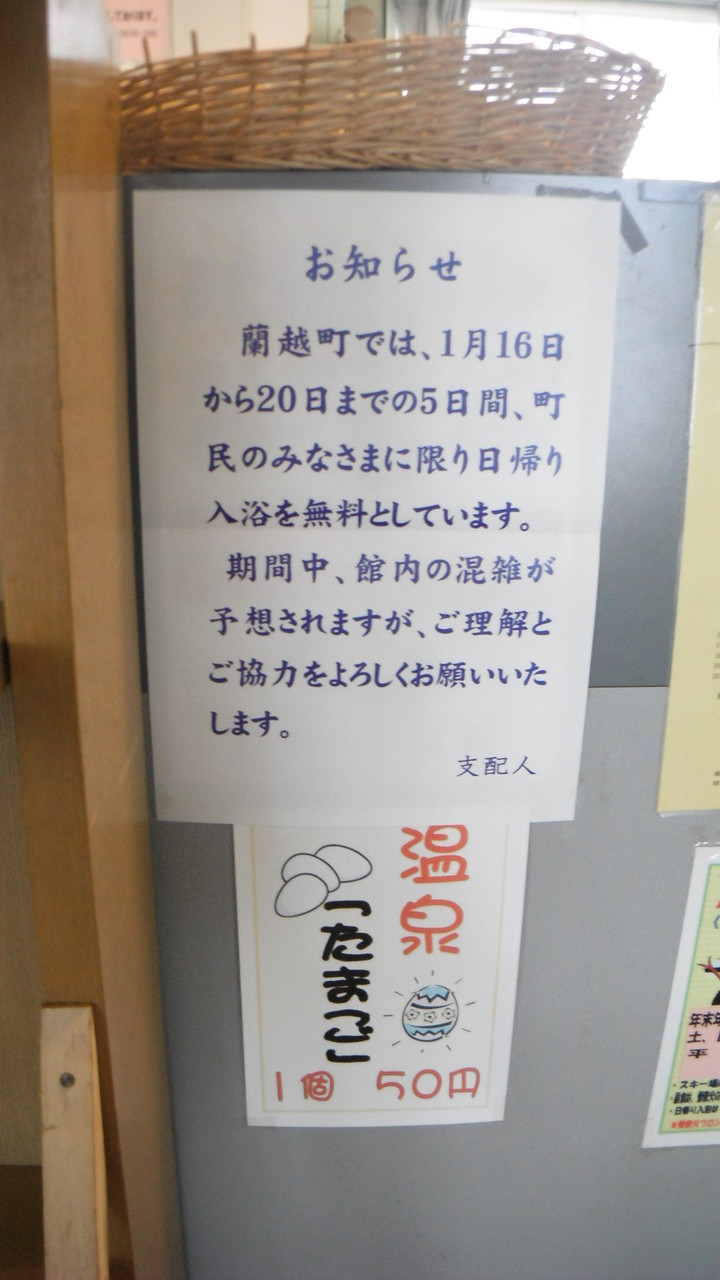 お知らせ
蘭越町では、1月16日
から20日までの5日間、町
民のみなさまに限り日帰り
入浴を無料としています。
期間中、館内の混雑が
予想されますが、ご理解と
ご協力をよろしくお願いいた
します。
支配人
温泉
「たまご」
1個 50円
年末年
土、
平
・スキー場
・日帰り入浴が